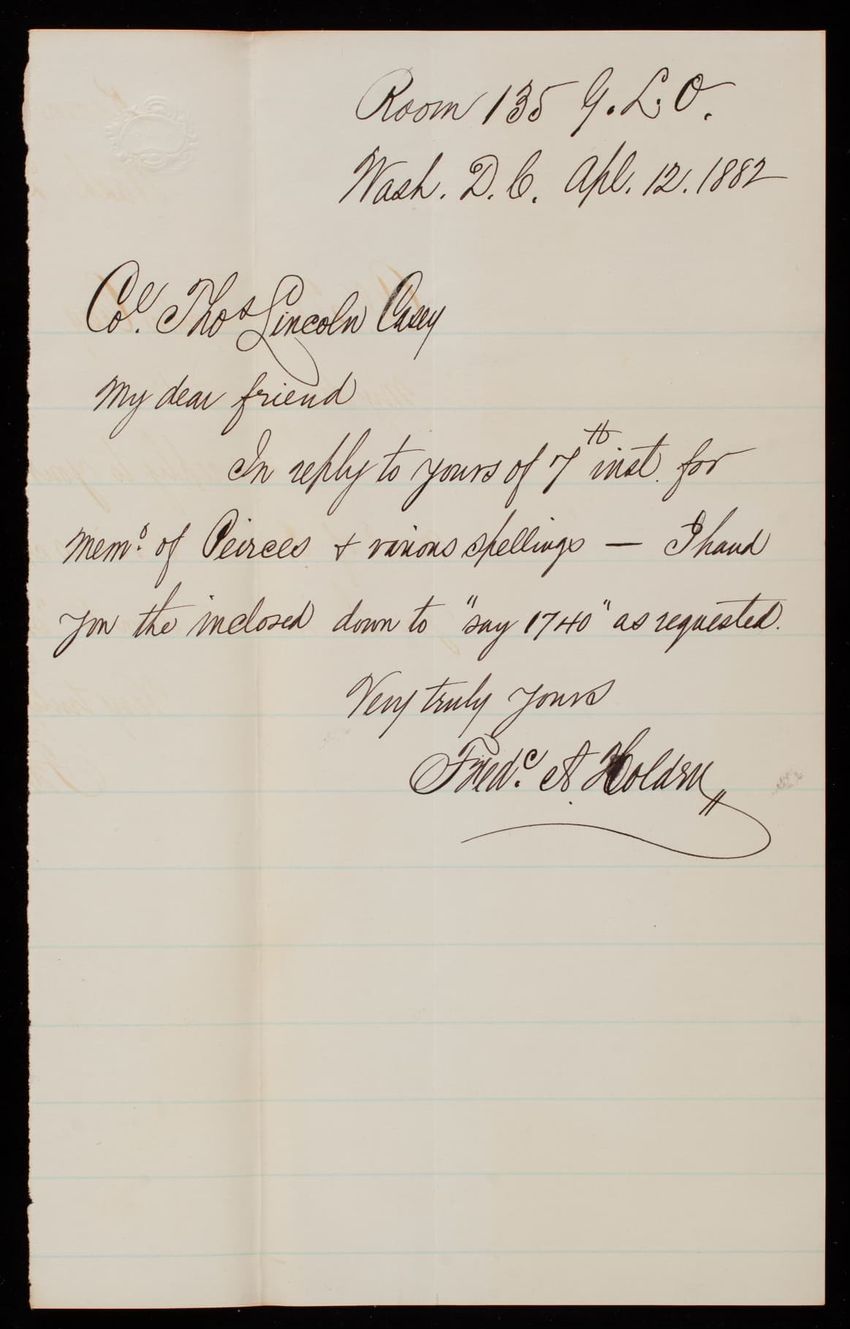 Room 135 G.L.O.
Wash. D.C. Apl. 12. 1882
Col. Thos Lincoln Casey
My dear friend
In reply to yours of 7th inst. for
Mems. of Peirces & various spellings — I hand
you the inclosed down to "say 1740" as requested.
Very truly yours
Fredc. A. Holden